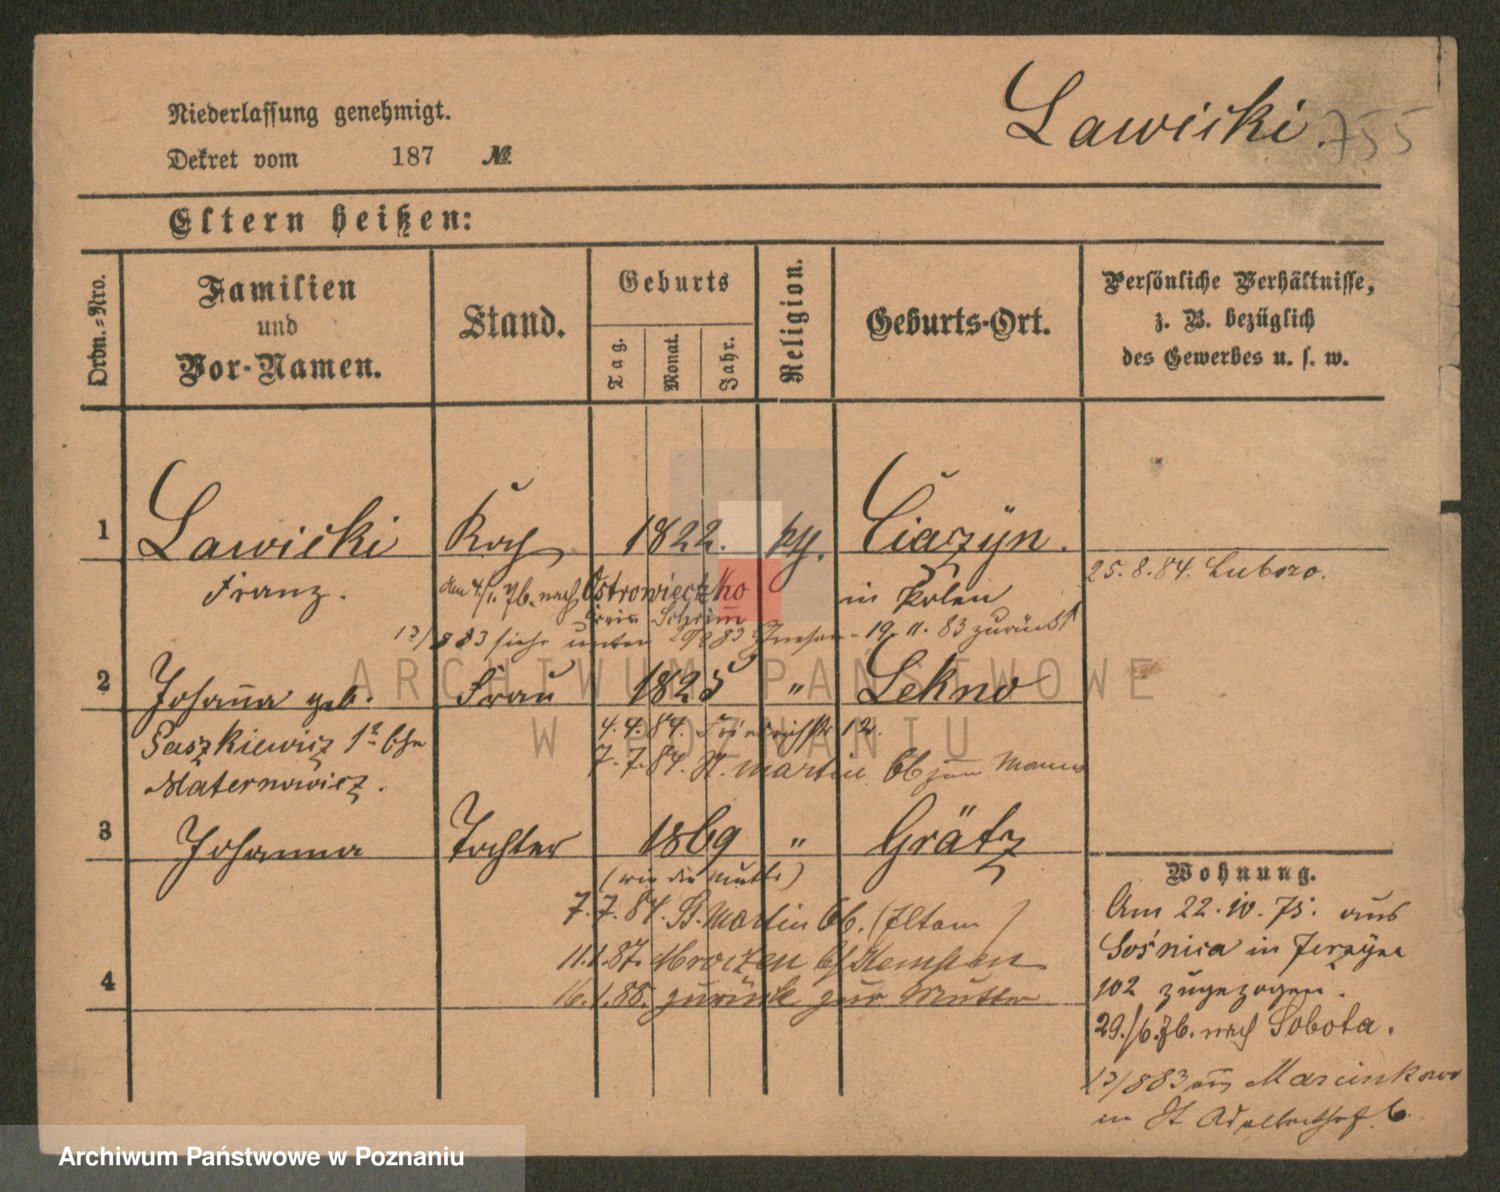 Niederlassung genehmigt.
Lawicki. 755
Dekret vom 187 №
Eltern heißen:
Ordn.=Nro.
Familien
und
Vor-Namen.
Stand.
Geburts
Tag.
Monat.
Jahr.
Religion.
Geburts-Ort.
Persönliche Verhältnisse,
z. B. bezüglich
des Gewerbes u. s. w.
1 Lawicki Koch 1822. kth. Ciazyn.
Franz. nach Ostrowieczko in Polen
25.8.84. Lubozo.
Kreis Schrim
13/8 83 siehe unten Gnesen - 19.11.83 zurück
2 Johanna geb. Frau 1825 " Lekno
Saszkiewicz 1e Ehe
4.4.84. 12.
7.7.84. St. Martin 66 zum Manne
Maternowicz.
3 Johanna Tochter 1869 " Grätz
(wie die Mutter)
7.7.84. St. Martin 66. (Eltern)
11.1.87. Mroczen b/ Kempen
4 16.1.88. zurück zur Mutter
Wohnung.
Am 22.IV.75. aus
Sośnica in Jerzyce
102 zugezogen.
29./6.76. nach Sobota.
13/8 83 aus Marcinkowo
in St Adalbertstr. 6.
ARCHIWUM PAŃSTWOWE
W POZNANIU
Archiwum Państwowe w Poznaniu